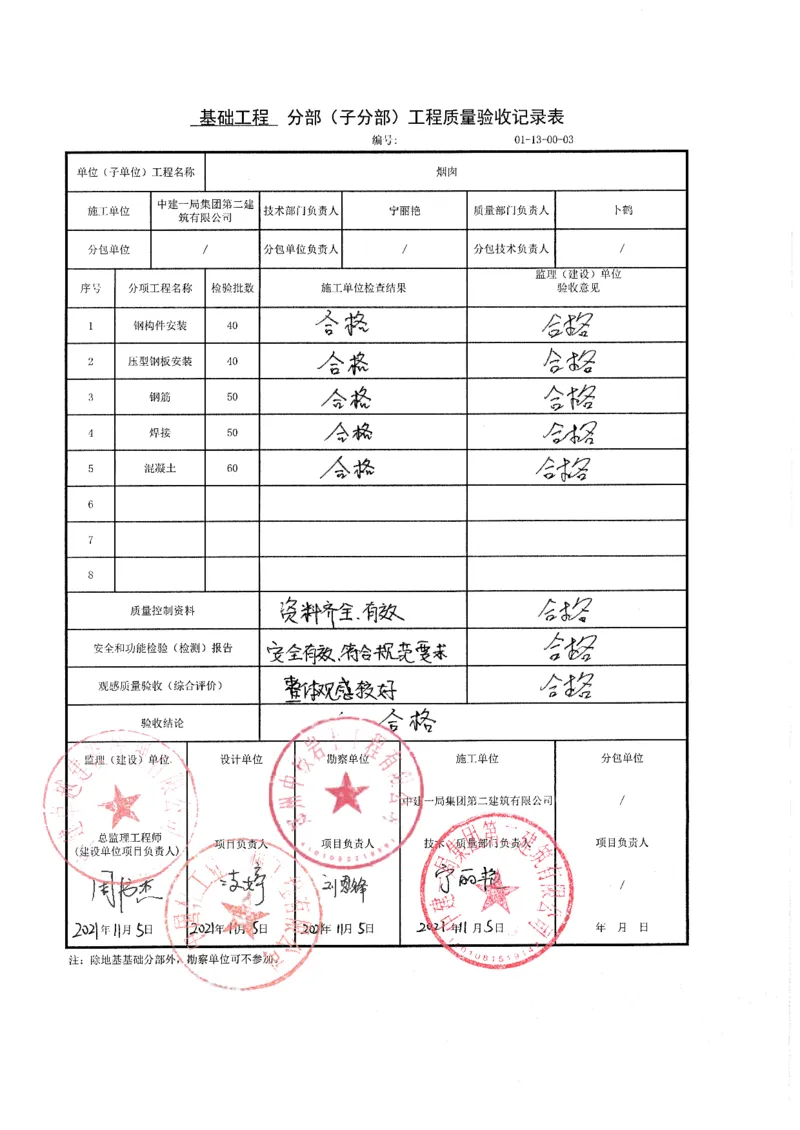 基础工程 分部（子分部）工程质量验收记录表
编号: 01-13-00-03
单位（子单位）工程名称 烟囱
施工单位 中建一局集团第二建筑有限公司 技术部门负责人 宁丽艳 质量部门负责人 卜鹤
分包单位 / 分包单位负责人 / 分包技术负责人 /
序号 分项工程名称 检验批数 施工单位检查结果 监理（建设）单位验收意见
1 钢构件安装 40 合格 合格
2 压型钢板安装 40 合格 合格
3 钢筋 50 合格 合格
4 焊接 50 合格 合格
5 混凝土 60 合格 合格
6
7
8
质量控制资料 资料齐全.有效 合格
安全和功能检验（检测）报告 安全有效、符合规范要求 合格
观感质量验收（综合评价） 整体观感较好 合格
验收结论 合格
监理（建设）单位 设计单位 勘察单位 施工单位 分包单位
中建一局集团第二建筑有限公司 /
总监理工程师
（建设单位项目负责人） 项目负责人 项目负责人 技术、质量部门负责人 项目负责人
周书杰 刘恩锋 宁丽艳 /
2021年11月5日 2021年11月5日 2021年11月5日 2021年11月5日 年 月 日
注：除地基基础分部外，勘察单位可不参加。